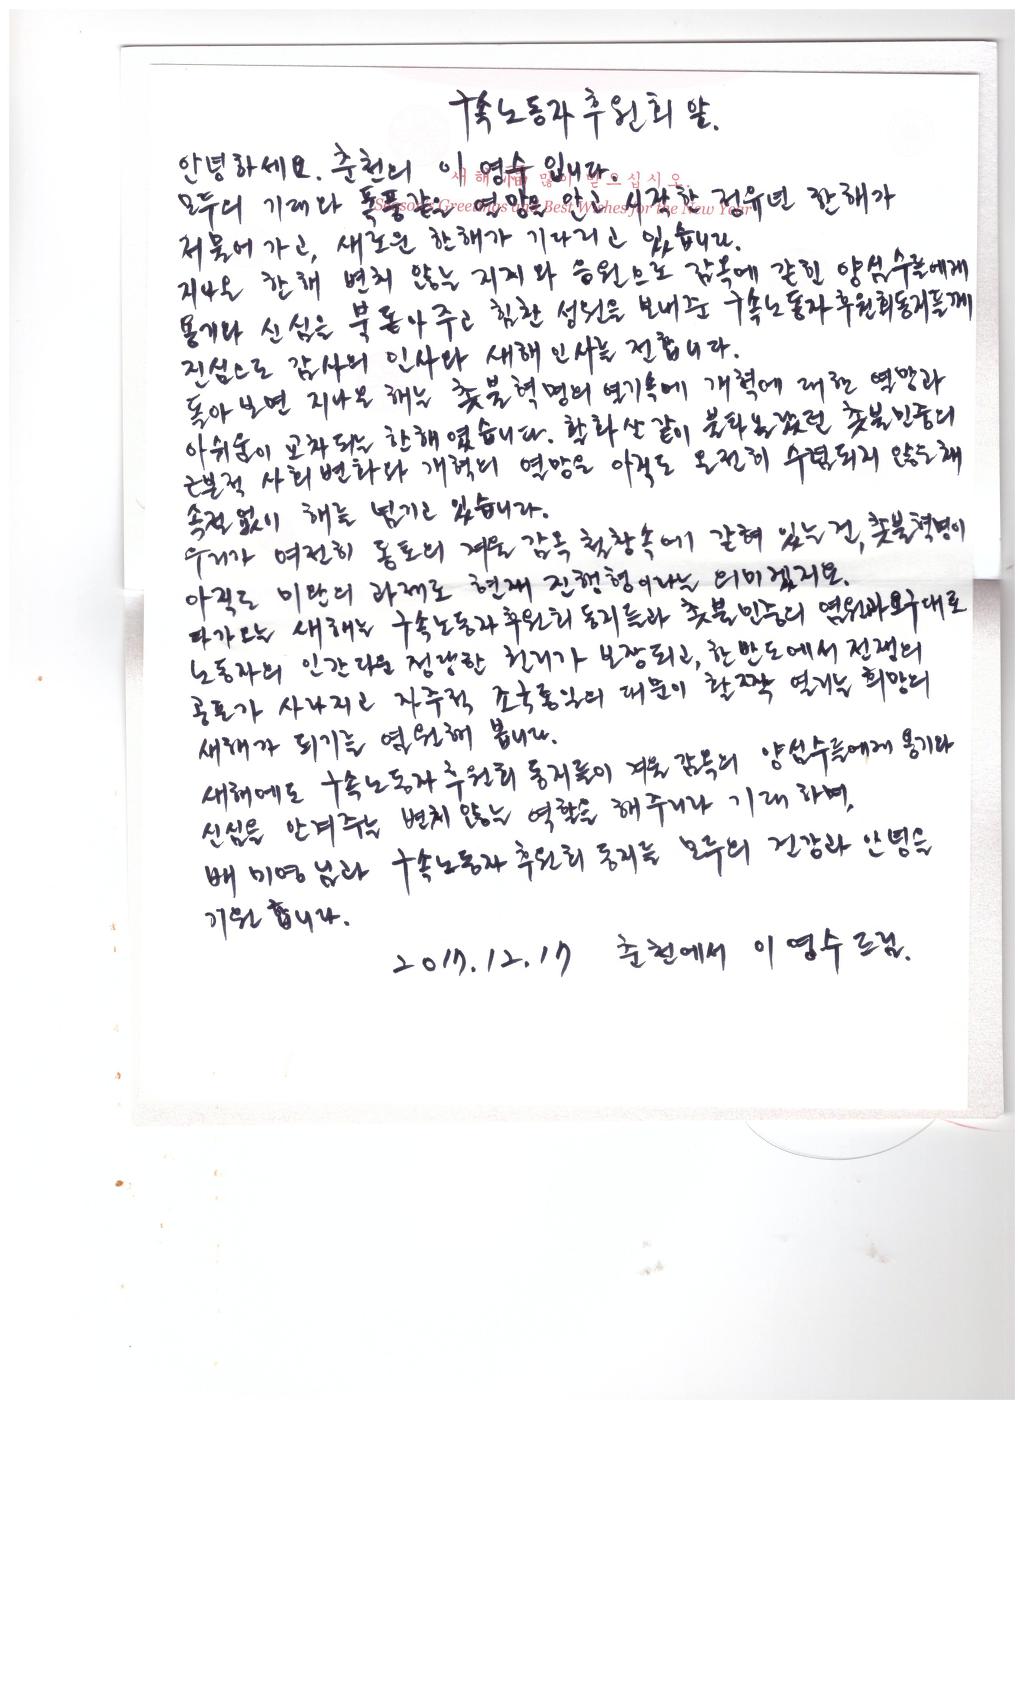 구속노동자후원회 앞.
안녕하세요. 춘천의 이영수입니다.
새해 복 많이 받으십시오.
모두의 기대와 폭풍같은 열망을 안고 시작한 정유년 한해가
Season's Greetings and Best Wishes for the New Year
저물어 가고, 새로운 한해가 기다리고 있습니다.
지나온 한해 변치 않는 지지와 응원으로 감옥에 갇힌 양심수들에게
용기와 신심을 북돋아 주고 힘찬 성원을 보내준 구속노동자후원회동지들께
진심으로 감사의 인사와 새해인사를 전합니다.
돌아보면 지나온 해는 촛불혁명의 열기속에 개혁에 대한 열망과
아쉬움이 교차되는 한해였습니다. 활화산같이 불타올랐던 촛불민중의
근본적 사회변화와 개혁의 열망은 아직도 온전히 수렴되지 않은채
속절없이 해를 넘기고 있습니다.
우리가 여전히 동토의 겨울 감옥 철창속에 갇혀 있는건, 촛불혁명이
아직도 미완의 과제로 현재 진행형이라는 의미겠지요.
다가오는 새해는 구속노동자후원회 동지들과 촛불민중의 염원과 요구대로
노동자의 인간다운 정당한 권리가 보장되고, 한반도에서 전쟁의
공포가 사라지고 자주적 조국통일의 대문이 활짝 열리는 희망의
새해가 되기를 염원해 봅니다.
새해에도 구속노동자후원회 동지들이 겨울 감옥의 양심수들에게 용기와
신심을 안겨주는 변치 않는 역할을 해주리라 기대하며,
배미영님과 구속노동자후원회 동지들 모두의 건강과 안녕을
기원합니다.
2017.12.17 춘천에서 이영수 드림.